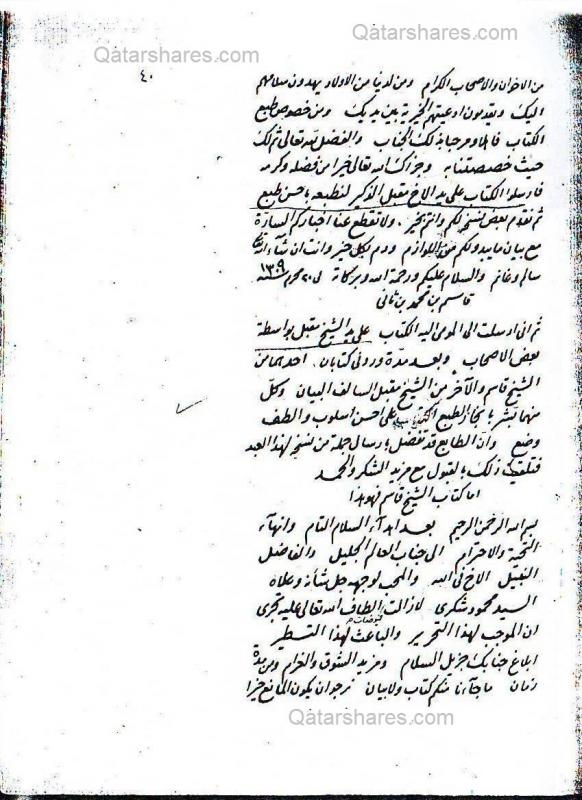 Qatarshares.com Qatarshares.com
٤٠
من الاخوان والاصحاب الكرام ومن لدينا من الاولاد يهدون سلامهم
اليك ويقدمون ادعيتهم الخيرية بين يديك ومن خصوص طبع
الكتاب فالامر حبابة لك الجناب والفضل لله تعالى ثم لك
حيث خصصتنا به وجزاك الله تعالى خيرا من فضله وكرمه
فارسلوا الكتاب على يد الاخ مقبل الذكير لنطبعه باحسن طبع
ثم نقدم بعض نسخ لكم وانتم بخير. ولا تقطع عنا اخباركم السارة
مع بيان ما يبدو لكم من اللوازم ودم بكل خير وانت ان شاء الله
سالم وغانم والسلام عليكم ورحمة الله وبركاته في ٢٠ محرم سنة ١٣٠٩
قاسم بن محمد بن ثاني
ثم اني ارسلت الى المومى اليه الكتاب على يد الشيخ مقبل بواسطة
بعض الاصحاب وبعد مدة ورد لي كتابان. احدهما من
الشيخ قاسم والآخر من الشيخ مقبل السالف البيان وكل
منهما يبشر بانجاز الطبع على احسن اسلوب والطف
وضع وان الطابع قد تفضل بارسال جملة من نسخه لهذا العبد
فتلقيت ذلك بالقبول مع مزيد الشكر والحمد
اما كتاب الشيخ قاسم فهو هذا
بسم الله الرحمن الرحيم بعد اهداء السلام التام وانهاء
التحية والاحترام الى جناب العالم الجليل والفاضل
النبيل الاخ في الله والمحب لوجهه جل شأنه وعلاه
السيد محمود شكري لا زالت الطاف الله تعالى عليه تجرى
ان الموجب لهذا التحرير والباعث لهذا التسطير
ابلاغ جنابك جزيل السلام ومزيد الشوق والغرام ومن مدة
زمان ما جاءنا منكم كتاب ولا بيان نرجو ان يكون المانع خيرا
Qatarshares.com